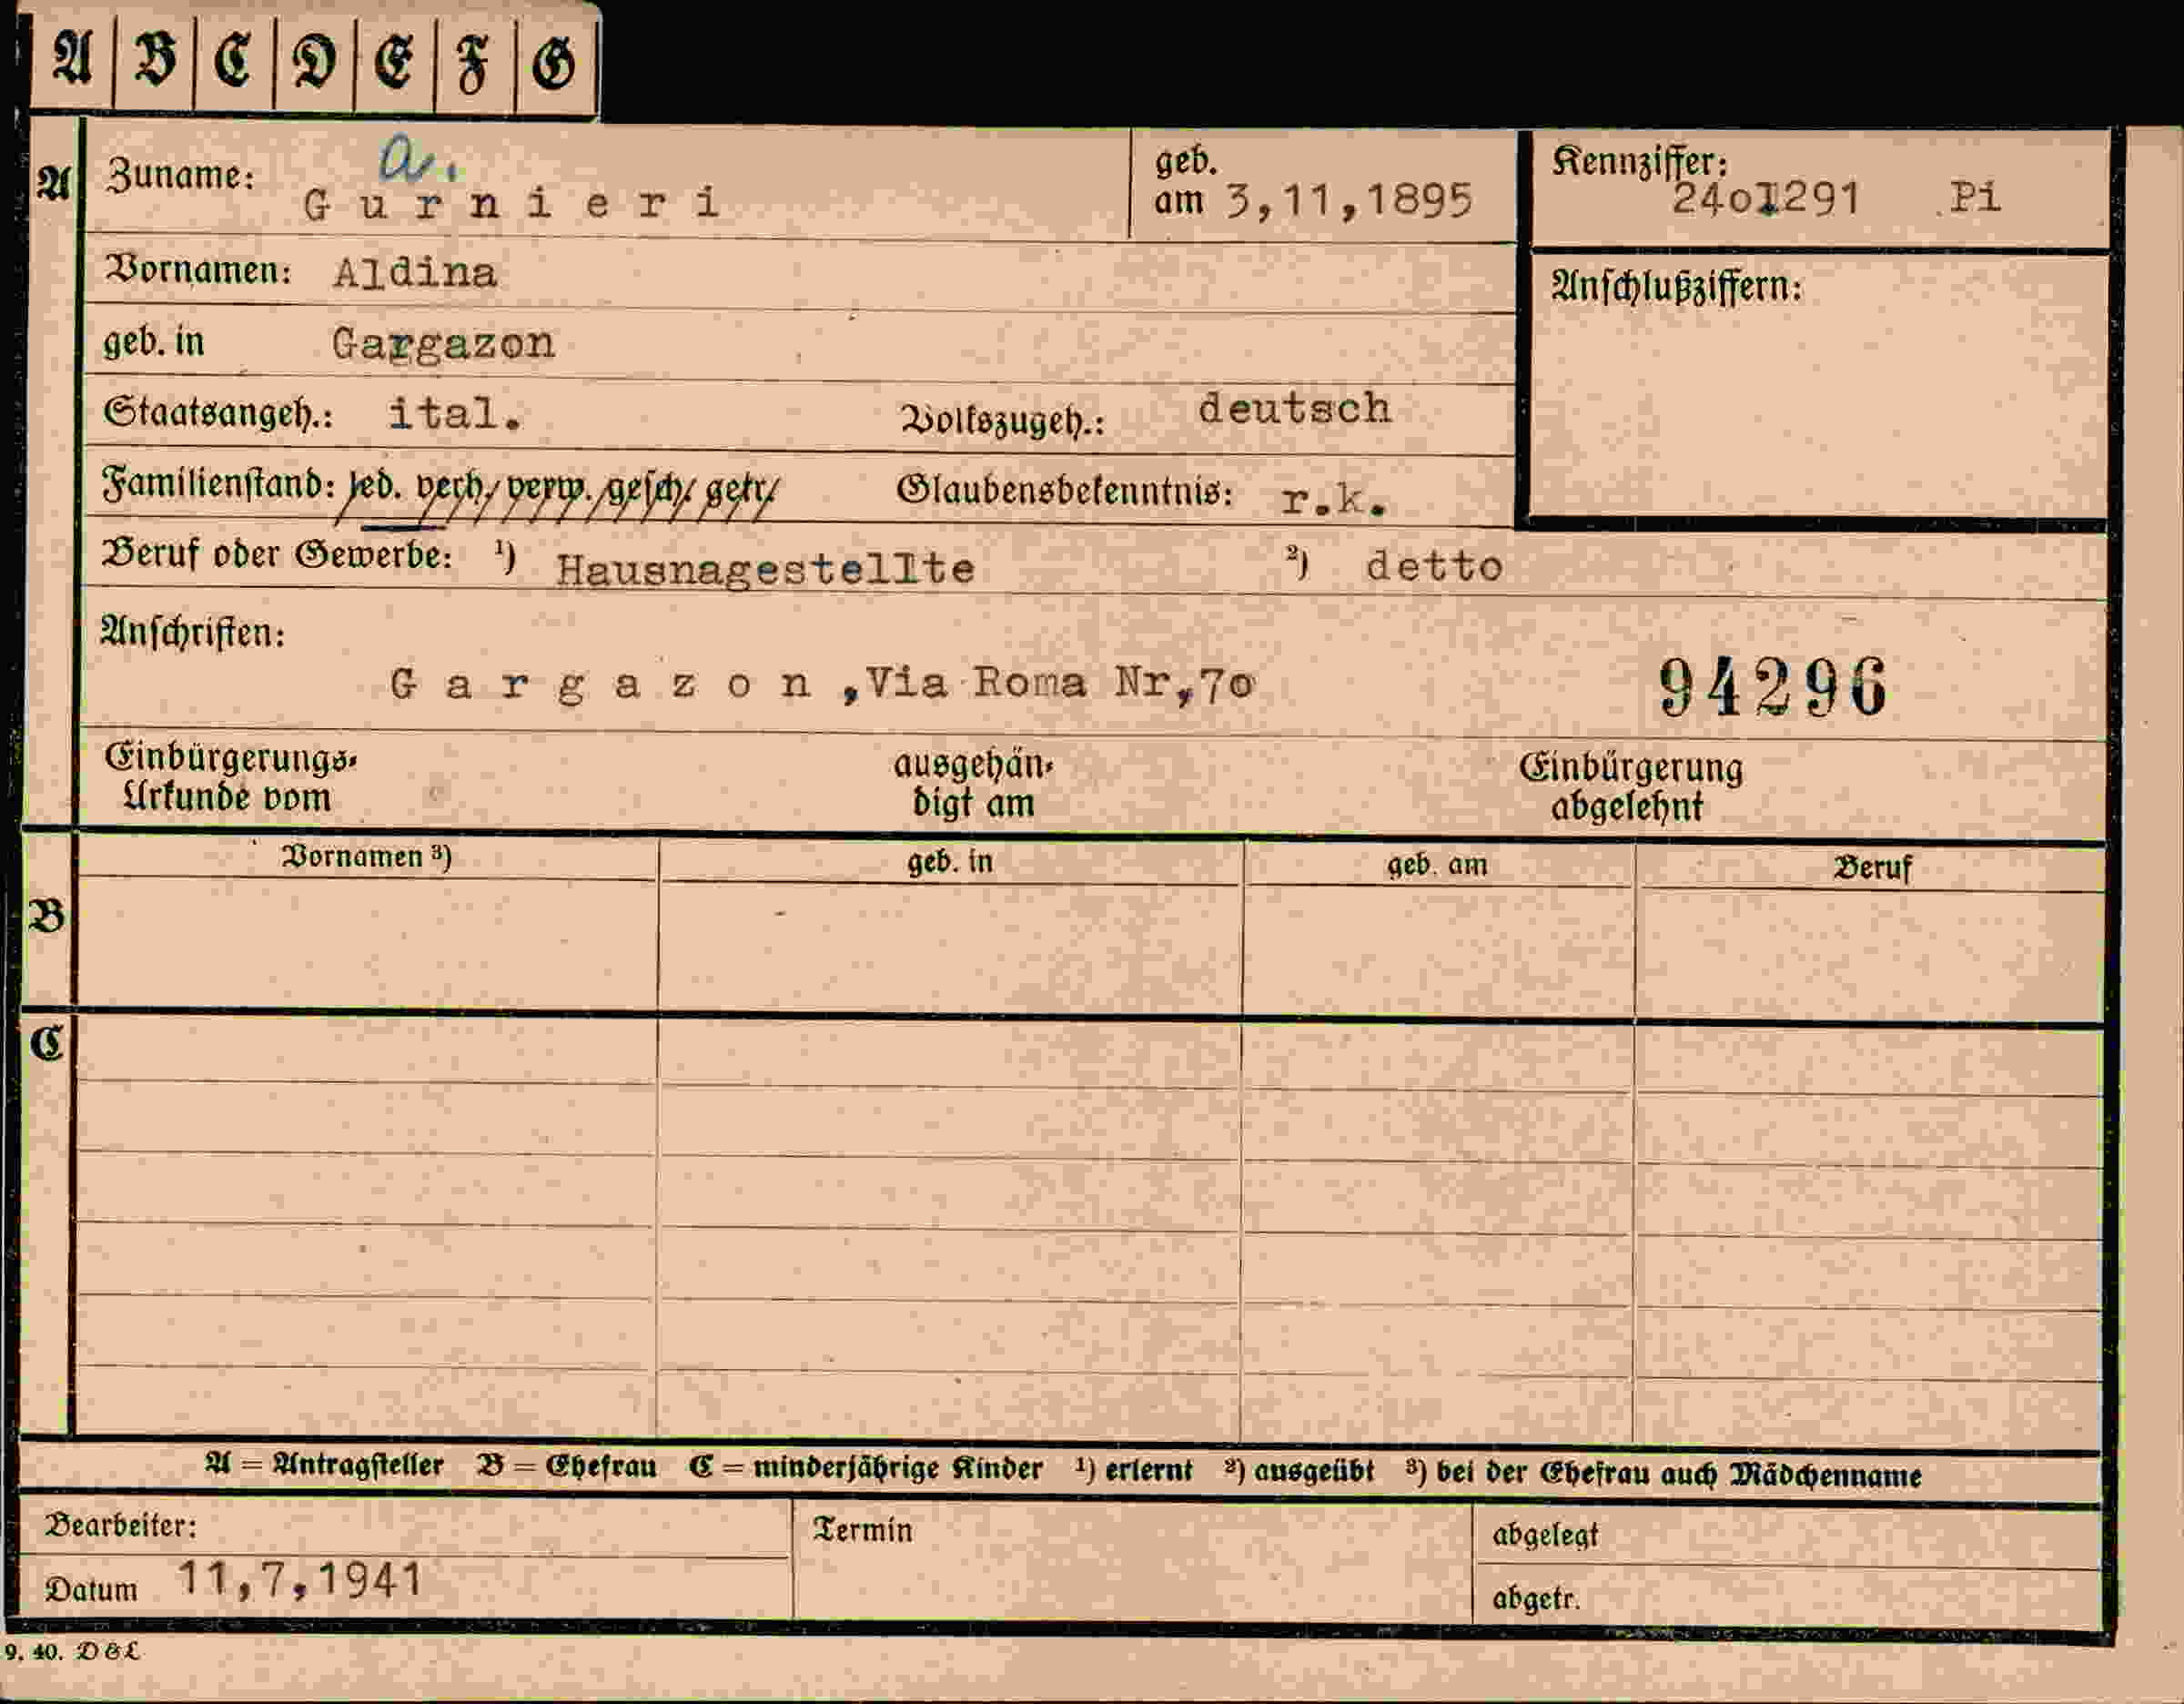 A B C D E F G
A Zuname: G u r n i e r i a. geb. am 3,11,1895 Kennziffer: 24o1291 Pi
Vornamen: Aldina
Anschlußziffern:
geb. in Gargazon
Staatsangeh.: ital. Volkszugeh.: deutsch
Familienstand: led. verh. verw. gesch. getr. Glaubensbekenntnis: r.k.
Beruf oder Gewerbe: ¹) Hausnagestellte ²) detto
Anschriften:
G a r g a z o n ,Via Roma Nr,7o 94296
Einbürgerungs- ausgehän- Einbürgerung
Urkunde vom digt am abgelehnt
Vornamen ³) geb. in geb. am Beruf
B
C
A = Antragsteller B = Ehefrau C = minderjährige Kinder ¹) erlernt ²) ausgeübt ³) bei der Ehefrau auch Mädchenname
Bearbeiter: Termin abgelegt
Datum 11,7,1941 abgetr.
9. 40. D & L